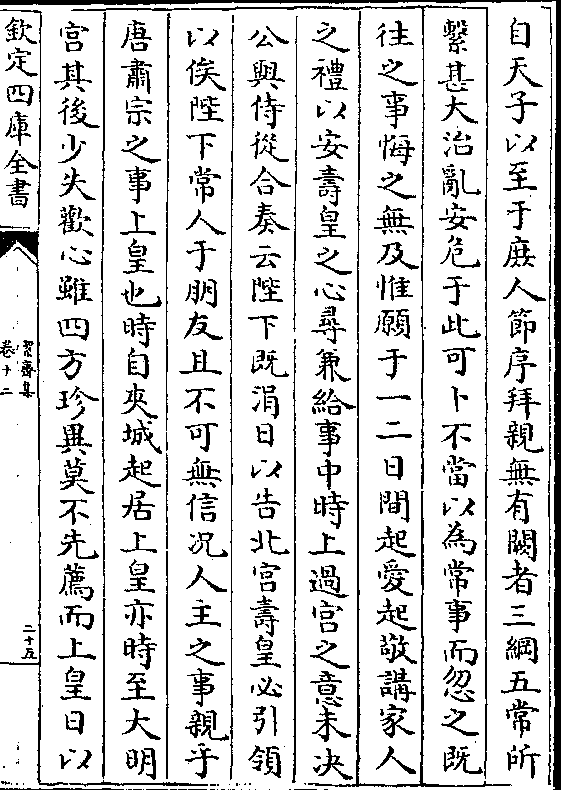 自天子以至于庶人節序拜親無有闕者三綱五常所
繫甚大治亂安危于此可卜不當以為常事而忽之既
往之事悔之無及惟願于一二日間起愛起敬講家人
之禮以安壽皇之心尋兼給事中時上過宫之意未決
公與侍從合奏云陛下既涓日以告北宫壽皇必引領
以俟陛下常人于朋友且不可無信况人主之事親乎
唐肅宗之事上皇也時自夾城起居上皇亦時至大明
宫其後少失歡心雖四方珍異莫不先薦而上皇日以
欽定四庫全書
絜齋集
卷十二
二十五